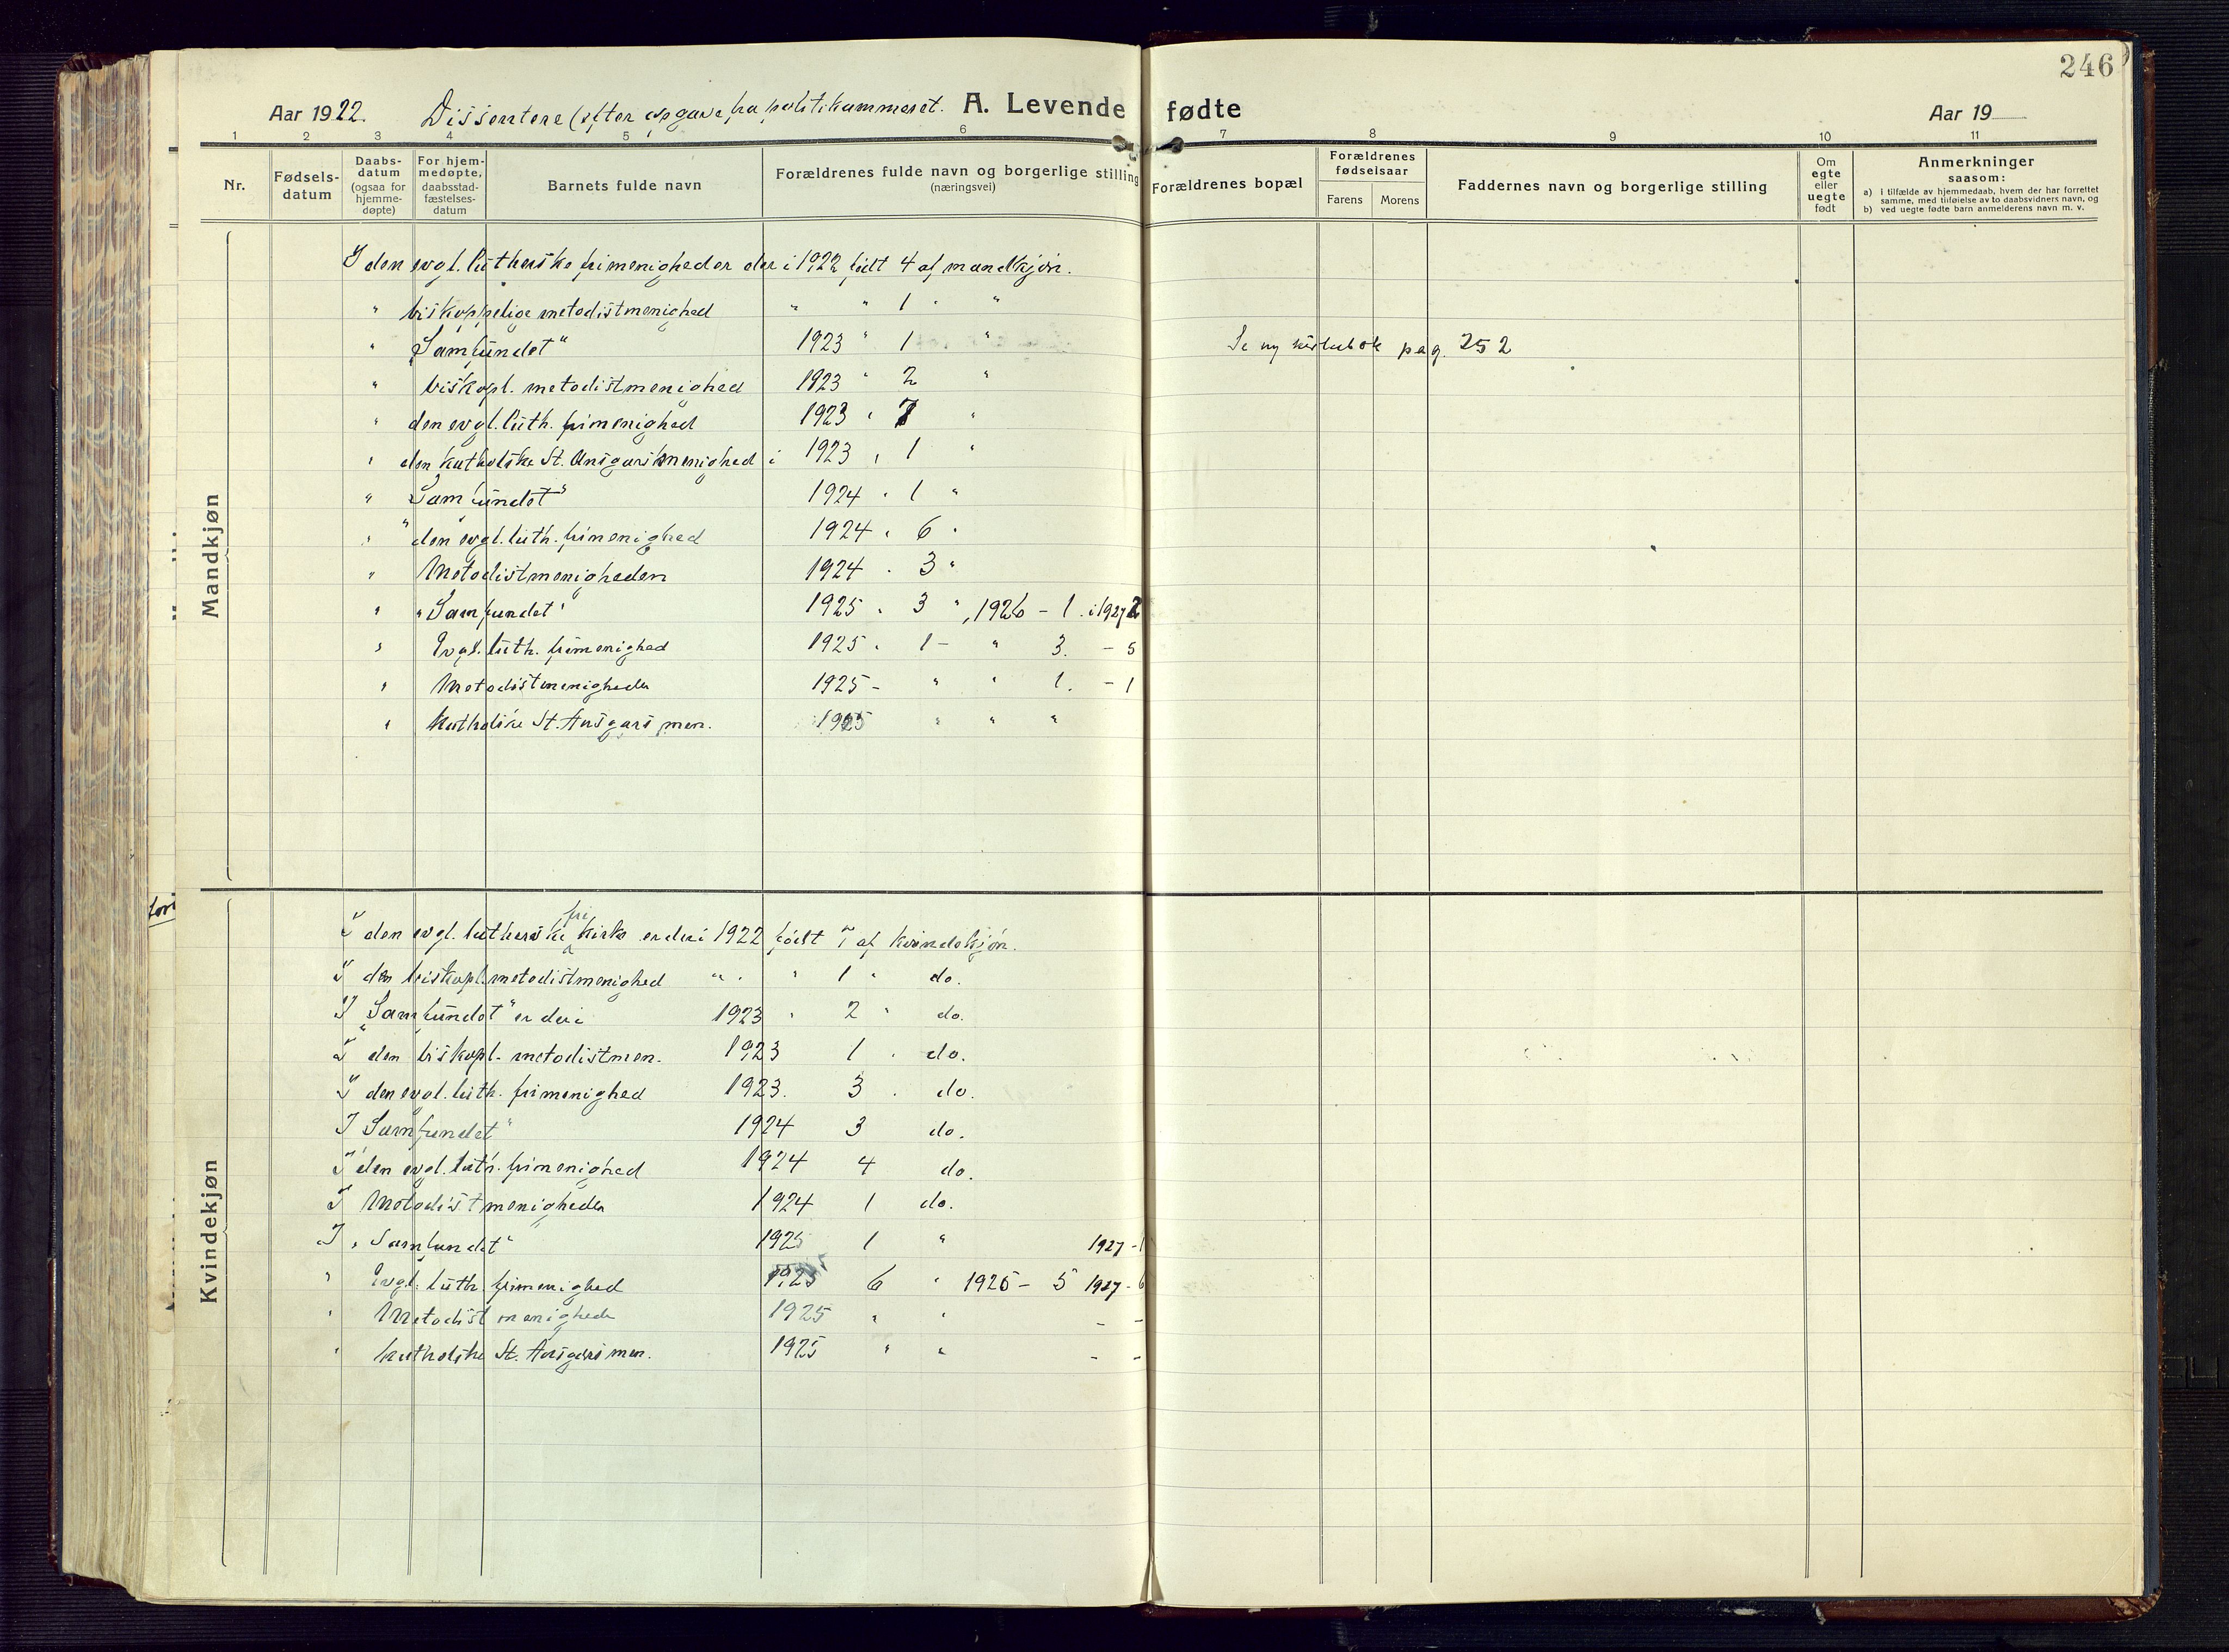 246
Aar 1922. Dissentere (efter opgave fra politikammeret. A. Levende fødte Aar 19
1 2 3 4 5 6 7 8 9 10 11
Nr. Fødsels-datum Daabs-datum (ogsaa for hjemme-døpte) For hjem-medøpte, daabsstad-fæstelses-datum Barnets fulde navn Forældrenes fulde navn og borgerlige stilling (næringsvei) Forældrenes bopæl Forældrenes fødselsaar Farens Morens Faddernes navn og borgerlige stilling Om egte eller uegte født Anmerkninger saasom:
a) i tilfælde av hjemmedaab, hvem der har forrettet samme, med tilføielse av to daabsvidners navn, og
b) ved uegte fødte barn anmelderens navn m. v.
Mandkjøn
I den evgl. lutherske frimenighed er der i 1922 født 4 af mandkjøn.
" biskoppelige metodistmenighed " " 1 " "
" "Samfundet" 1923 " 1 " Se ny kirkebok pag. 252
" biskopl. metodistmenighed 1923 " 2 "
" den evgl. luth. frimenighed 1923 " 7 "
" den katholske St. Ansgars menighed i 1923 " 1 "
" "Samfundet" 1924 " 1 "
" den evgl. luth. frimenighed 1924 " 6 "
" Metodistmenigheden 1924 " 3 "
" "Samfundet" 1925 " 3 ", 1926 - 1. i 1927 2
" Evgl. luth. frimenighed 1925 " 1 - " 3. - 5
" Metodistmenigheden 1925 - " " 1. - 1
" Katholske St. Ansgars men. 1925 " " "
Kvindekjøn
I den evgl. lutherske fri kirke er der i 1922 født 7 af kvindekjøn.
I den biskopl. metodistmenighed " " " 1 " do.
I "Samfundet" er der i 1923 " 2 " do.
I den biskopl. metodistmen. 1923 1 " do.
I den evgl. luth. frimenighed 1923. 3 . do.
I "Samfundet" 1924 3 do.
I den evgl. luth. frimenighed 1924 4 do.
I Metodistmenigheden 1924 1 do.
I "Samfundet" 1925 1 " 1927 - 1
" Evgl. luth. frimenighed 1925 6 " 1926 - 5 1927 - 6
" Metodistmenigheden 1925 " " - -
" Katholske St. Ansgars men. 1925 " " - -